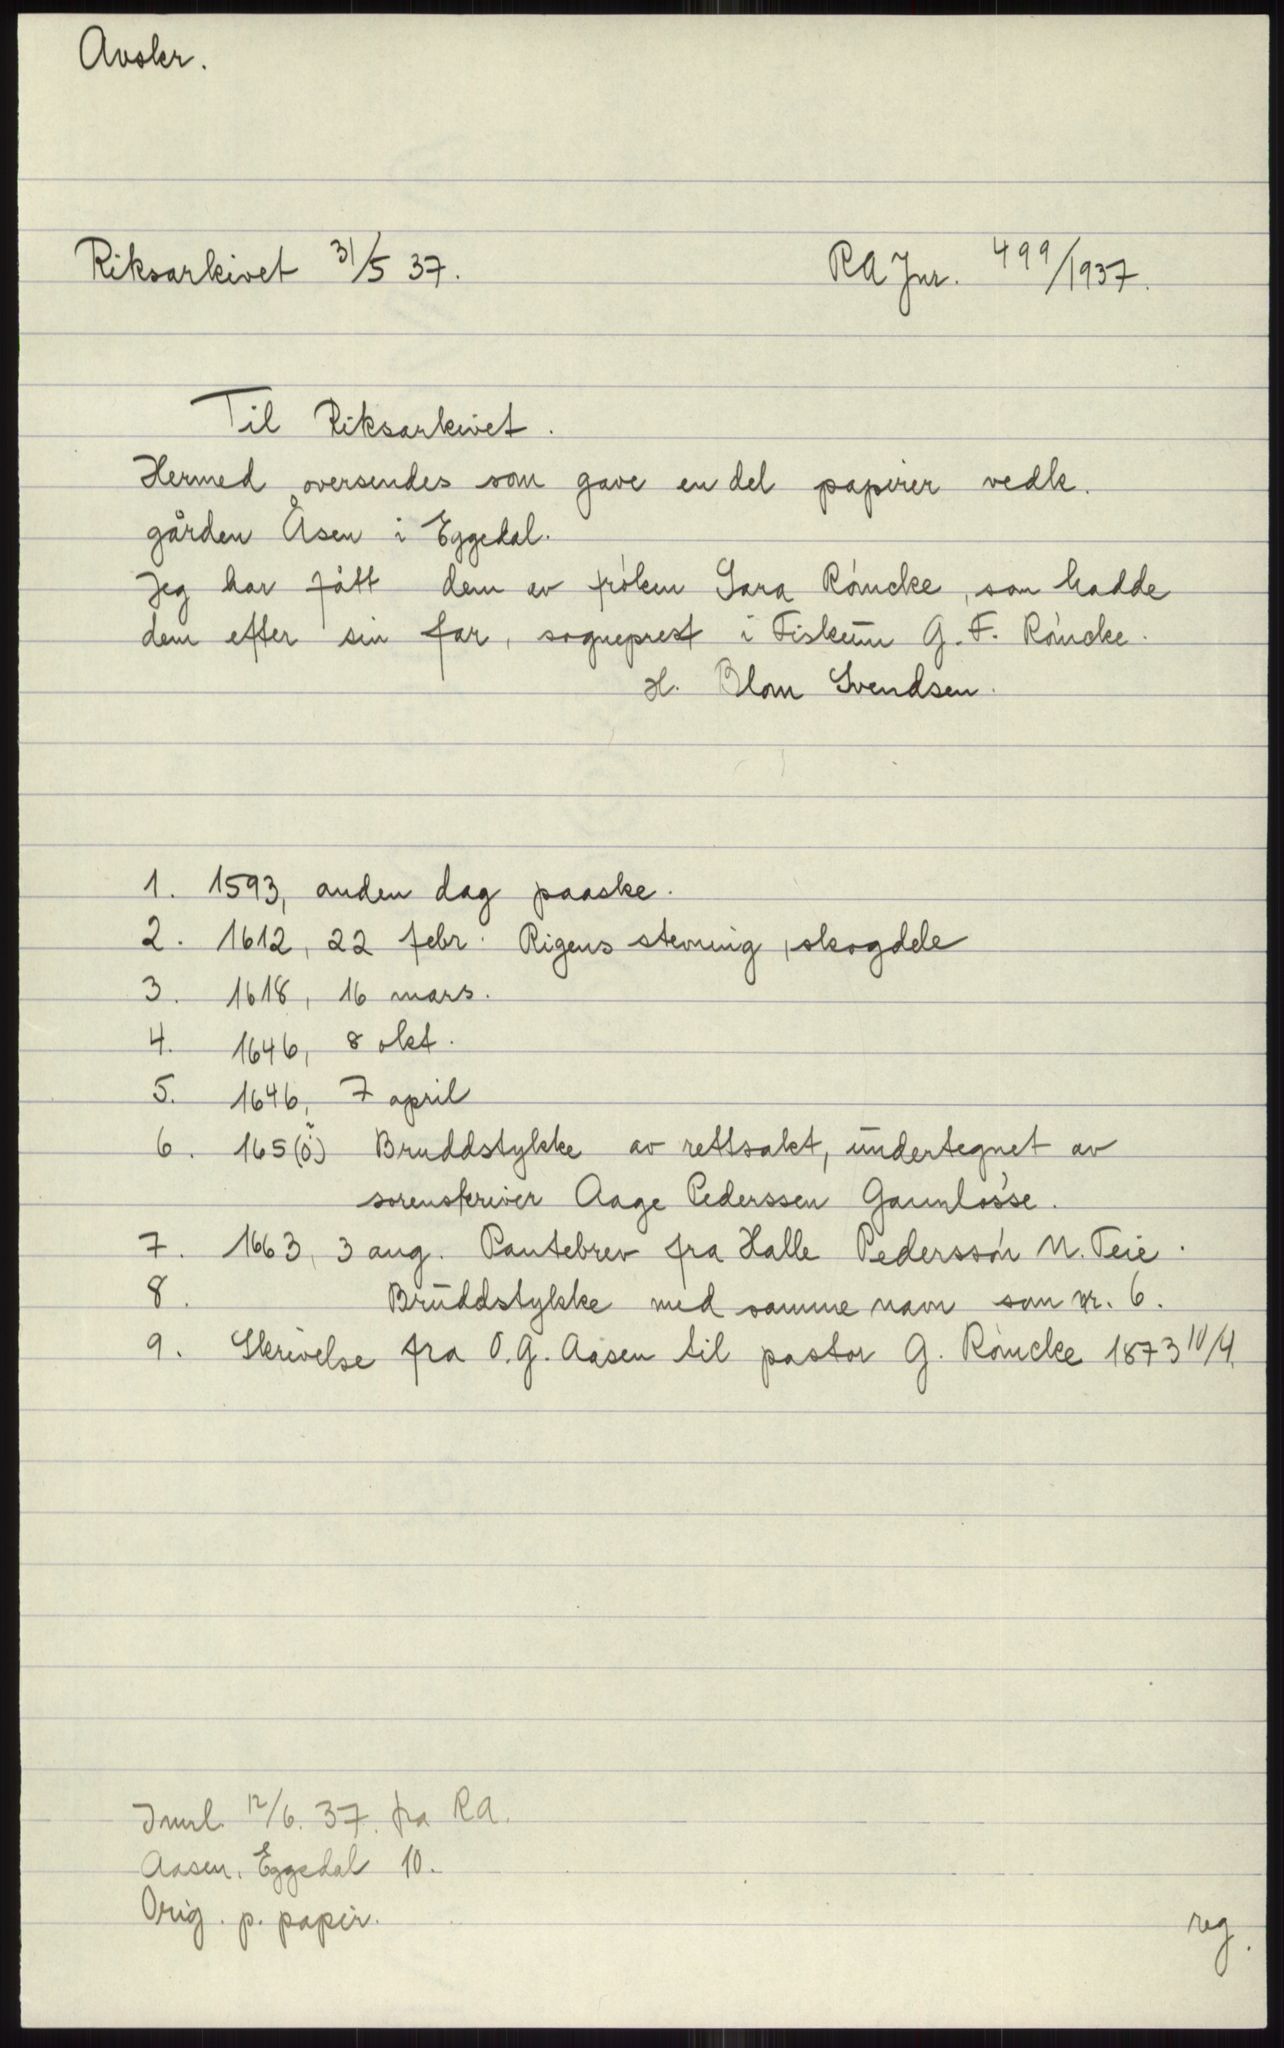 Avskr.
Riksarkivet 31/5 37. RA Jnr. 499/1937.
Til Riksarkivet.
Hermed oversendes som gave en del papirer vedk.
gården Åsen i Eggedal.
Jeg har fått dem av frøken Sara Røncke, som hadde
dem efter sin far, sogneprest i Fiskum G. F. Røncke.
H. Blom Svendsen.
1. 1593, anden dag paaske.
2. 1612, 22 febr. Rigens stevning, skogdele
3. 1618, 16 mars.
4. 1646, 8 okt.
5. 1646, 7 april
6. 165(0?) Bruddstykke av rettsakt, undertegnet av
sorenskriver Aage Pederssen Gaunløsse.
7. 1663, 3 aug. Pantebrev fra Halle Pederssøn N. Teie.
8. Bruddstykke med samme navn som nr. 6.
9. Skrivelse fra O. G. Aasen til pastor G. Røncke 1873 10/4.
Innl. 12/6. 37. fra RA.
Aasen, Eggedal 10.
Orig. p. papir.
reg.